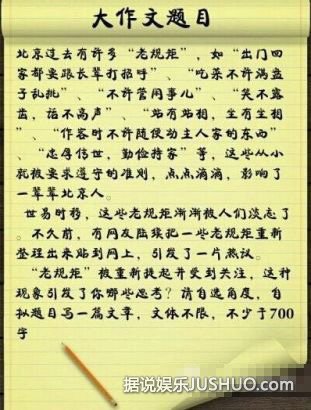 大作文题目
北京过去有许多“老规矩”，如“出门回
家都要跟长辈打招呼”、“吃菜不许满盘
子乱挑”、“不许管闲事儿”、“笑不露
齿，话不高声”、“站有站相，坐有坐相
”、“作客时不许随便动主人家的东西”
、“忠厚传世，勤俭持家”等，这些从小
就被要求遵守的准则，点点滴滴，影响了
一辈辈北京人。
世易时移，这些老规矩渐渐被人们淡忘了
。不久前，有网友陆续把一些老规矩重新
整理出来贴到网上，引发了一片热议。
“老规矩”被重新提起并受到关注，这种
现象引发了你哪些思考？请自选角度，自
拟题目写一篇文章，文体不限，不少于700
字
据说娱乐JUSHUO.COM